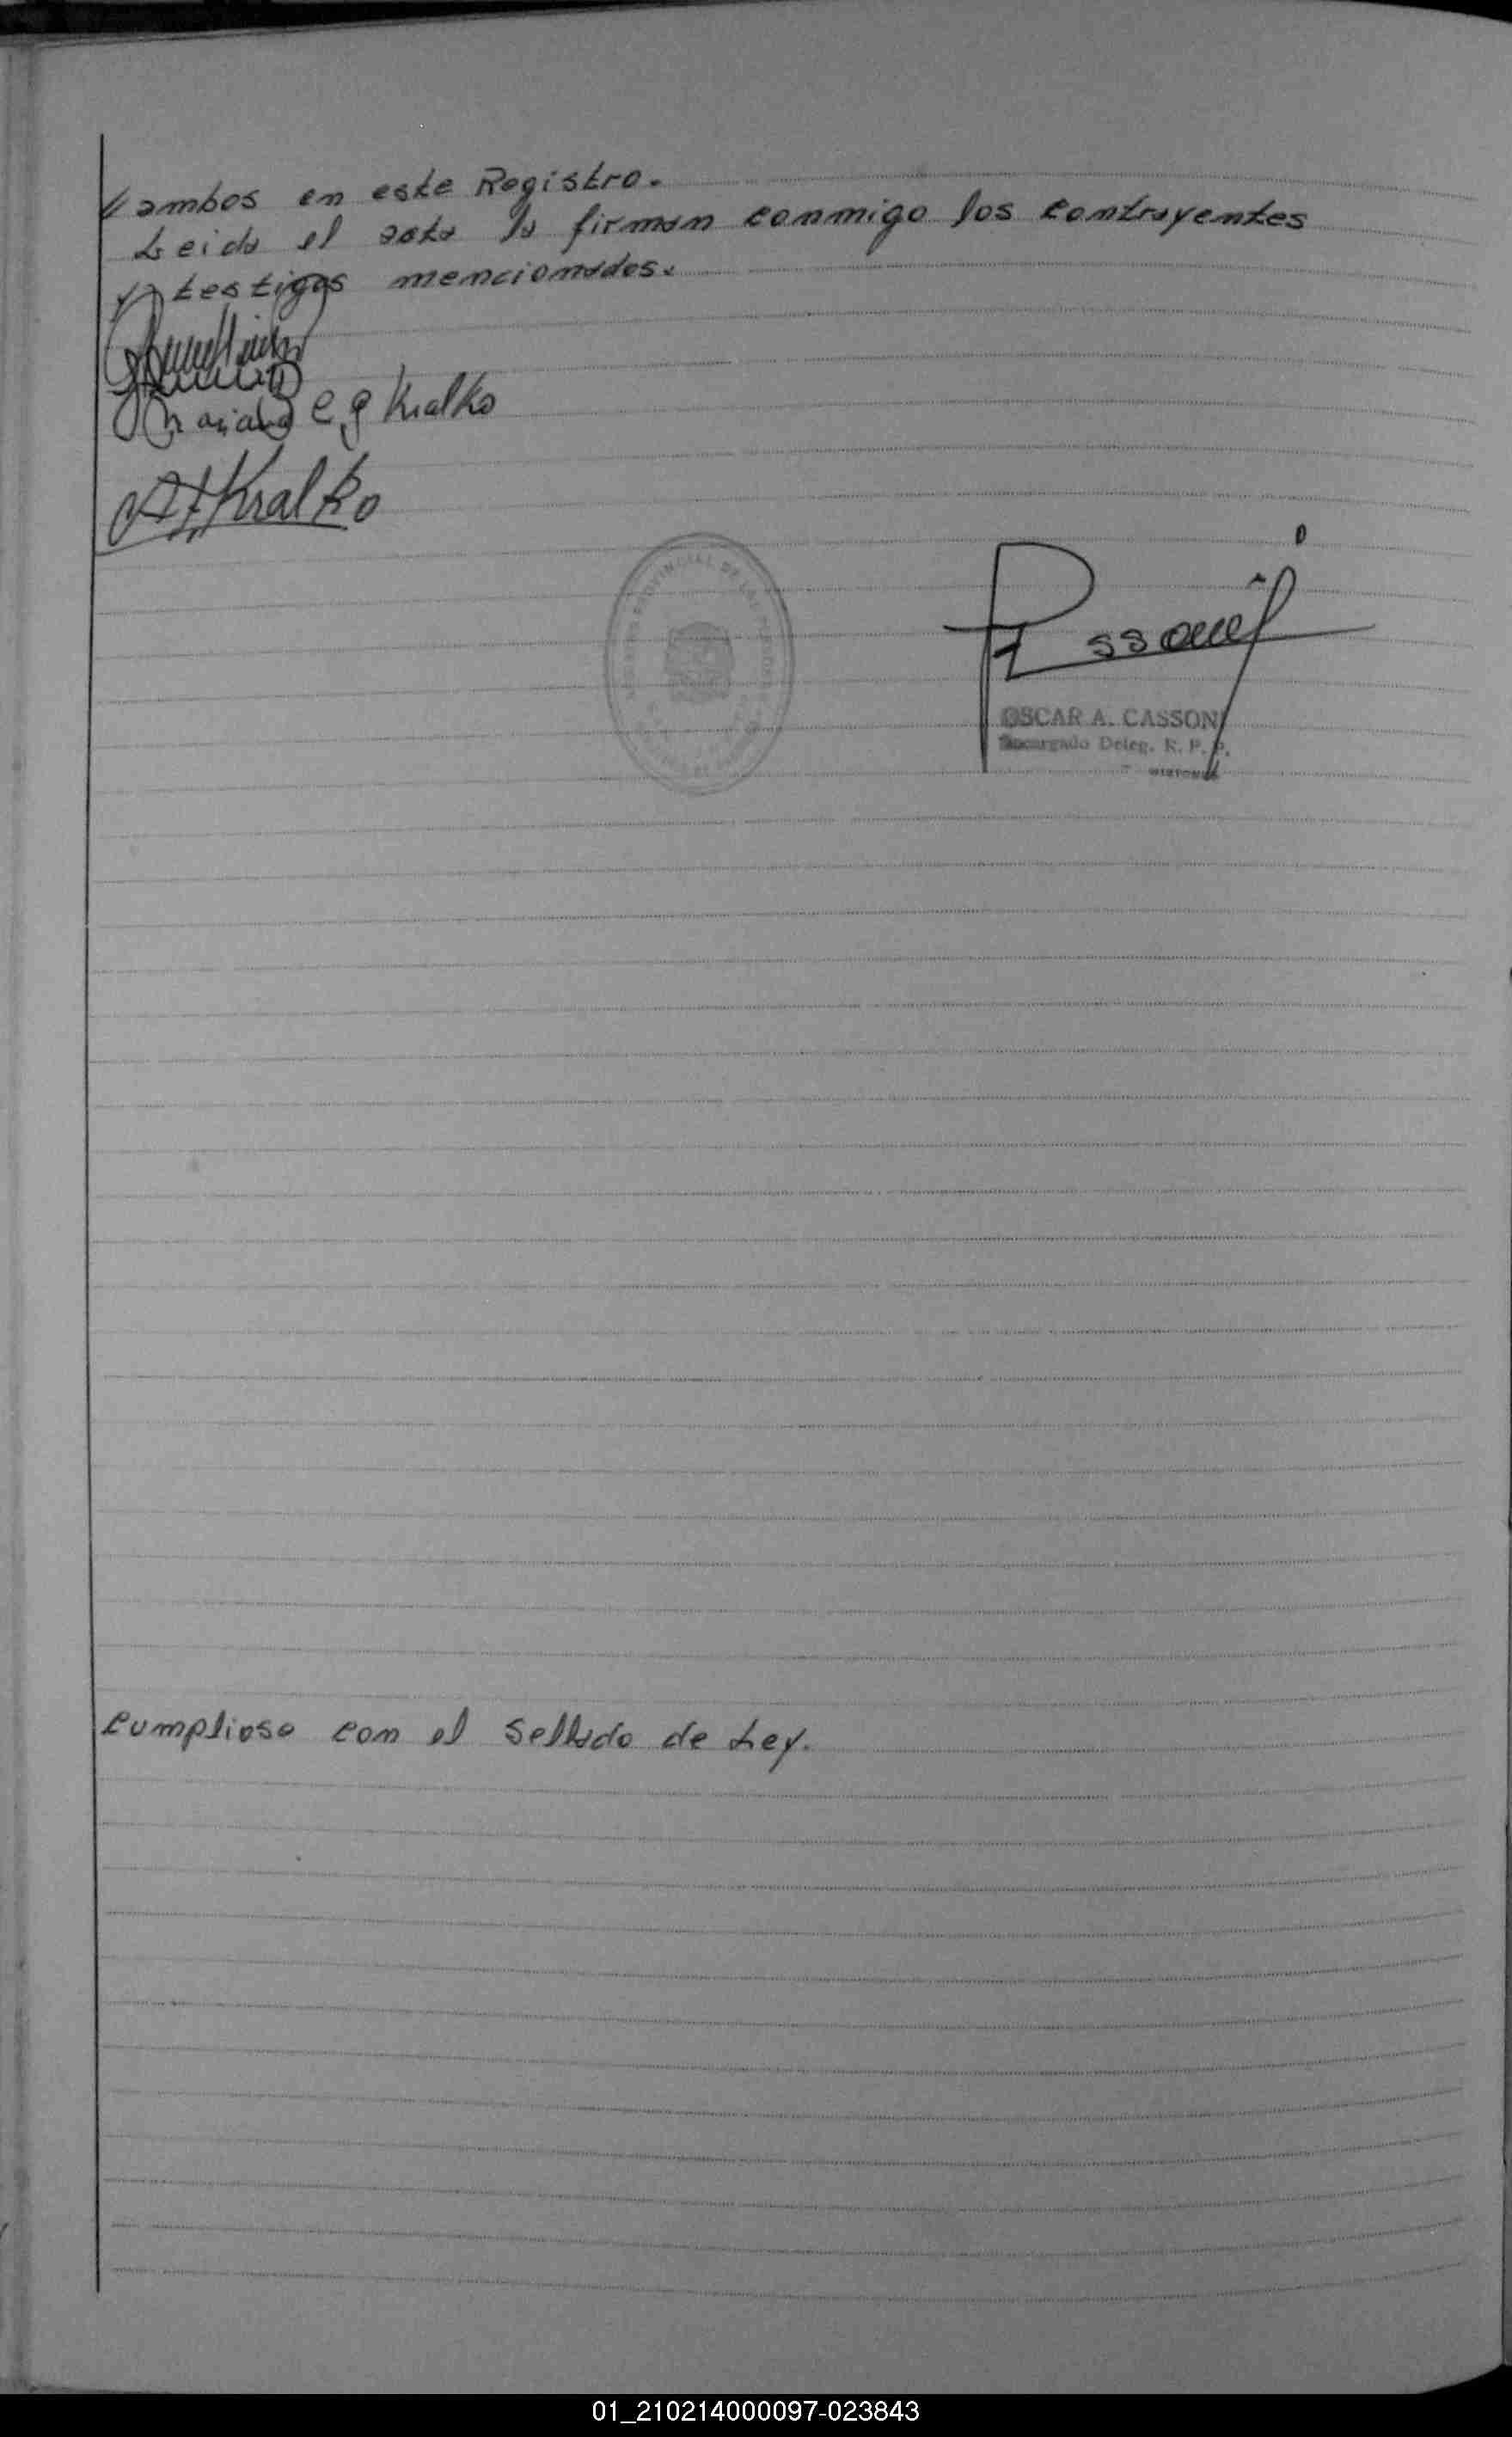 y ambos en este Registro.
Leida el acta la firman conmigo los contrayentes
y testigos mencionados.
e, g Kralko
Kralko
OSCAR A. CASSONI
Encargado Deleg. R. P. P.
Cumpliose con el Sellado de Ley.
01_210214000097-023843